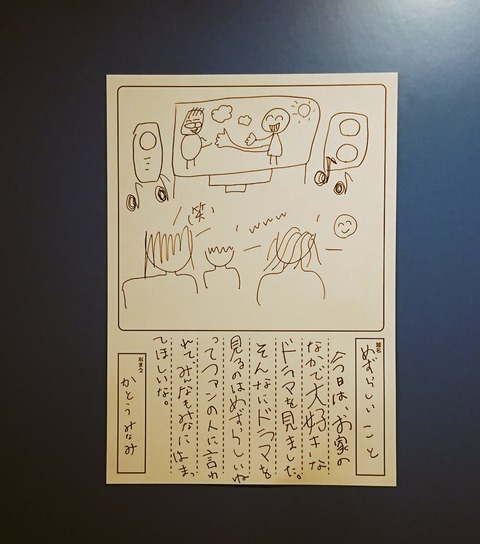 (笑)
www
題名
めずらしいこと
今日は、お家の
なかで大好きな
ドラマを見ました。
そんなにドラマを
見るのはめずらしいね
ってファンの人に言わ
れて、みんなもみなにはまっ
てほしいな。
なまえ
かとうみなみ